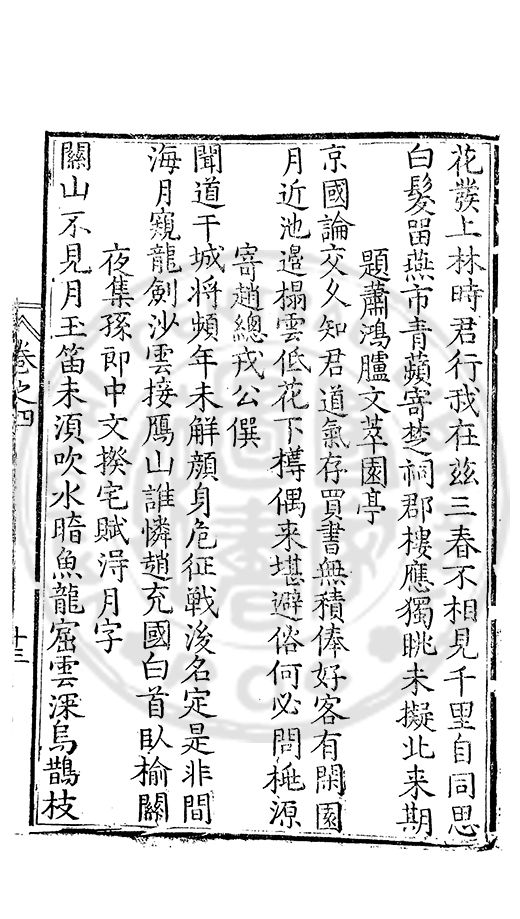 花發上林時君行我在茲三春不相見千里自同思
白髮留燕市青蘋寄楚祠郡樓應獨眺未擬北来期
題蕭鴻臚文萃園亭
京國論交久知君道氣存買書無積俸好客有閑園
月近池邊榻雲低花下樽偶来堪避俗何必問桃源
寄趙總戎公僎
聞道干城将頻年未解顔身危征戦後名定是非間
海月窺龍劍沙雲接鴈山誰憐趙充國白首臥榆關
夜集孫郎中文揆宅賦得月字
關山不見月玉笛未須吹水暗魚龍窟雲深烏鵲枝
卷之四
十三